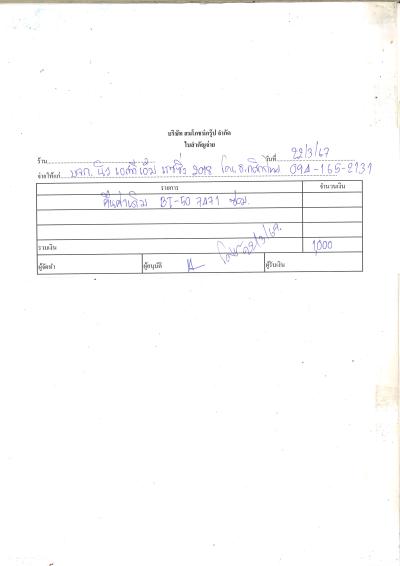 บริษัท สมโภชน์กรุ๊ป จำกัด
ใบสำคัญจ่าย
ร้าน วันที่ 22/3/67
จ่ายให้แก่ บจก. นิว เอสที เอ็ม 2018 โอน ธ.กสิกรไทย 094-165-2131
รายการ จำนวนเงิน
คืนค่าเติม BT-50 7471 ซ่อม.
22/3/67.
รวมเงิน 1,000
ผู้จัดทำ ผู้อนุมัติ ผู้รับเงิน